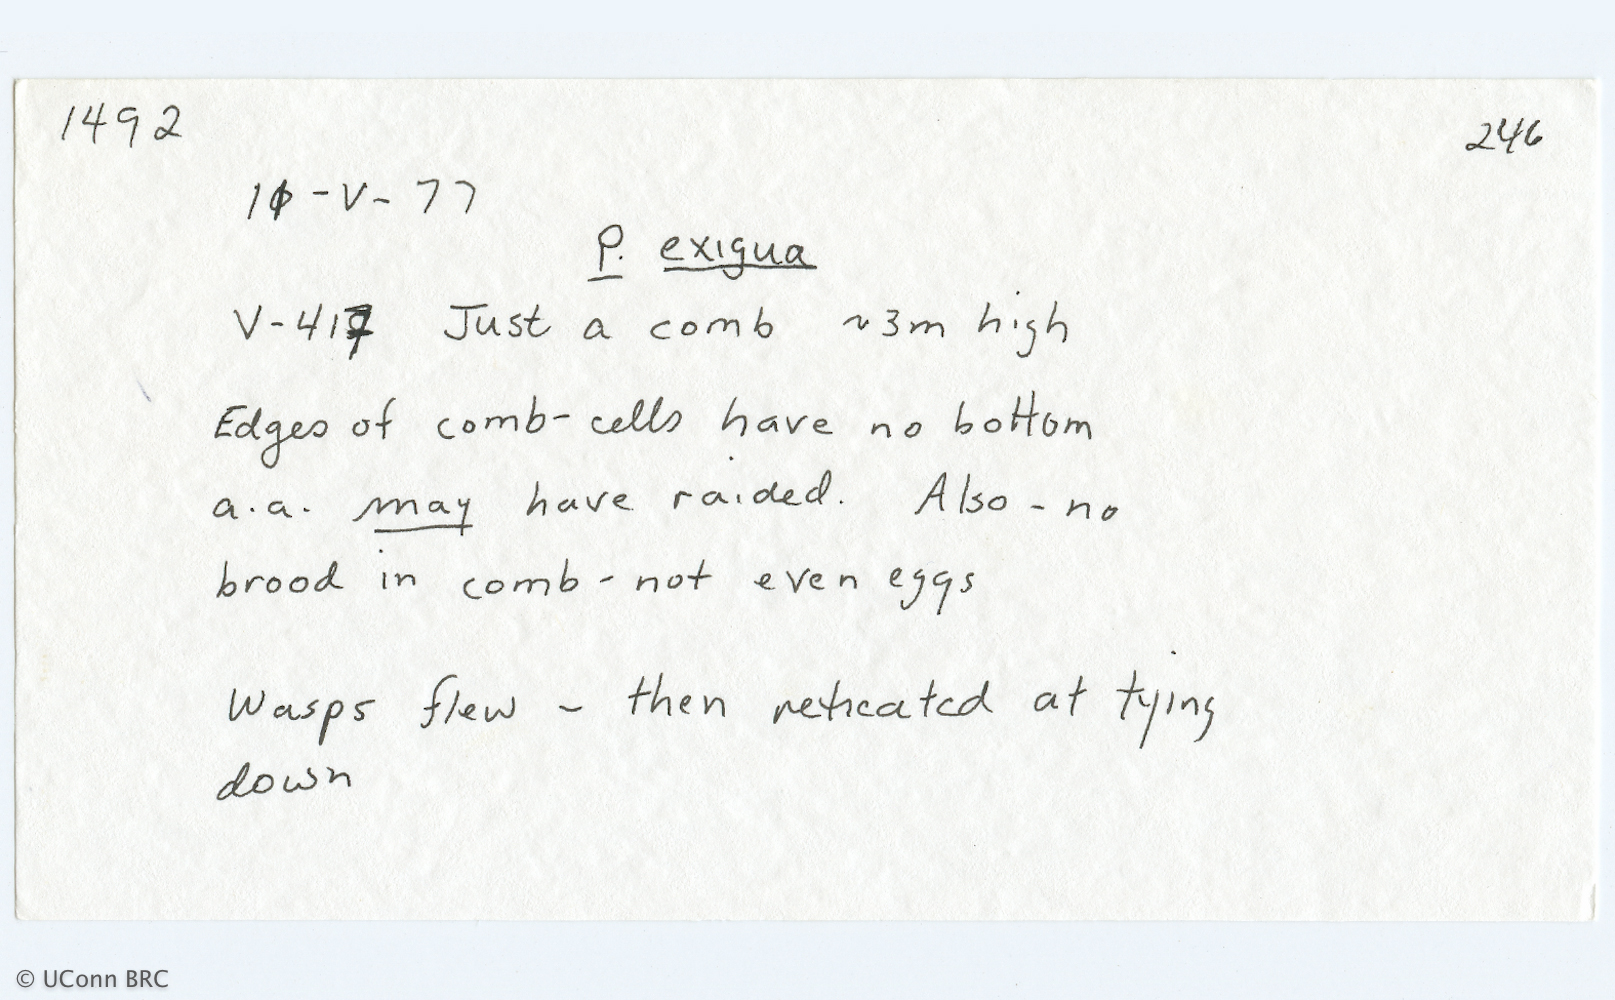 1492
246
10-V-77
P. exigua
V-417 Just a comb ~3m high
Edges of comb-cells have no bottom
a.a. may have raided. Also - no
brood in comb - not even eggs
Wasps flew - then retreated at tying
down
© UConn BRC